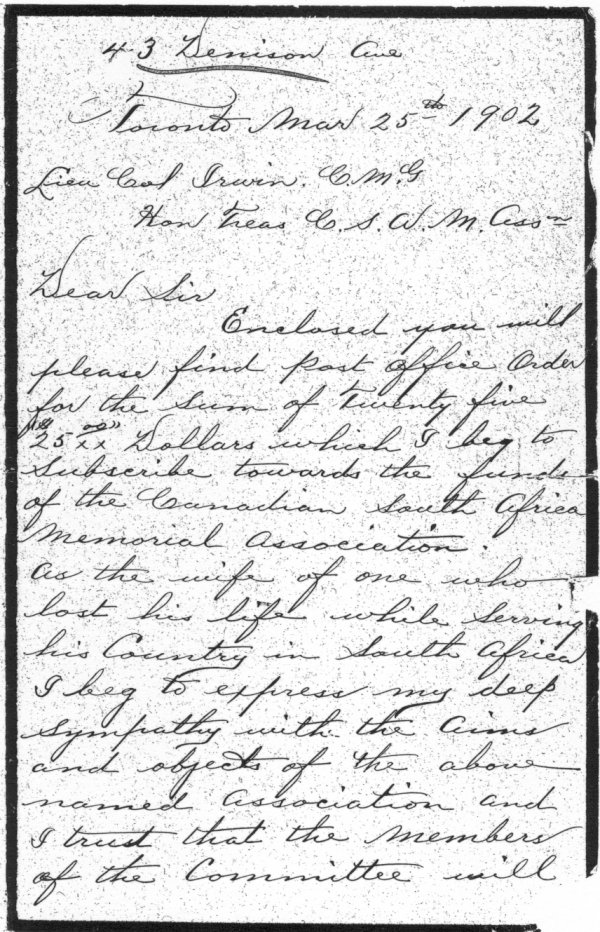 43 Denison Ave
Toronto Mar 25th 1902
Lieu Col Irwin. C.M.G
Hon Treas C. S. A. M. Assn
Dear Sir
Enclosed you will
please find Post Office Order
for the sum of Twenty five
$25 00/xx Dollars which I beg to
Subscribe towards the funds
of the Canadian South Africa
Memorial Association.
As the wife of one who
lost his life while serving
his Country in South Africa
I beg to express my deep
sympathy with the aims
and objects of the above
named association and
I trust that the Members
of the Committee will